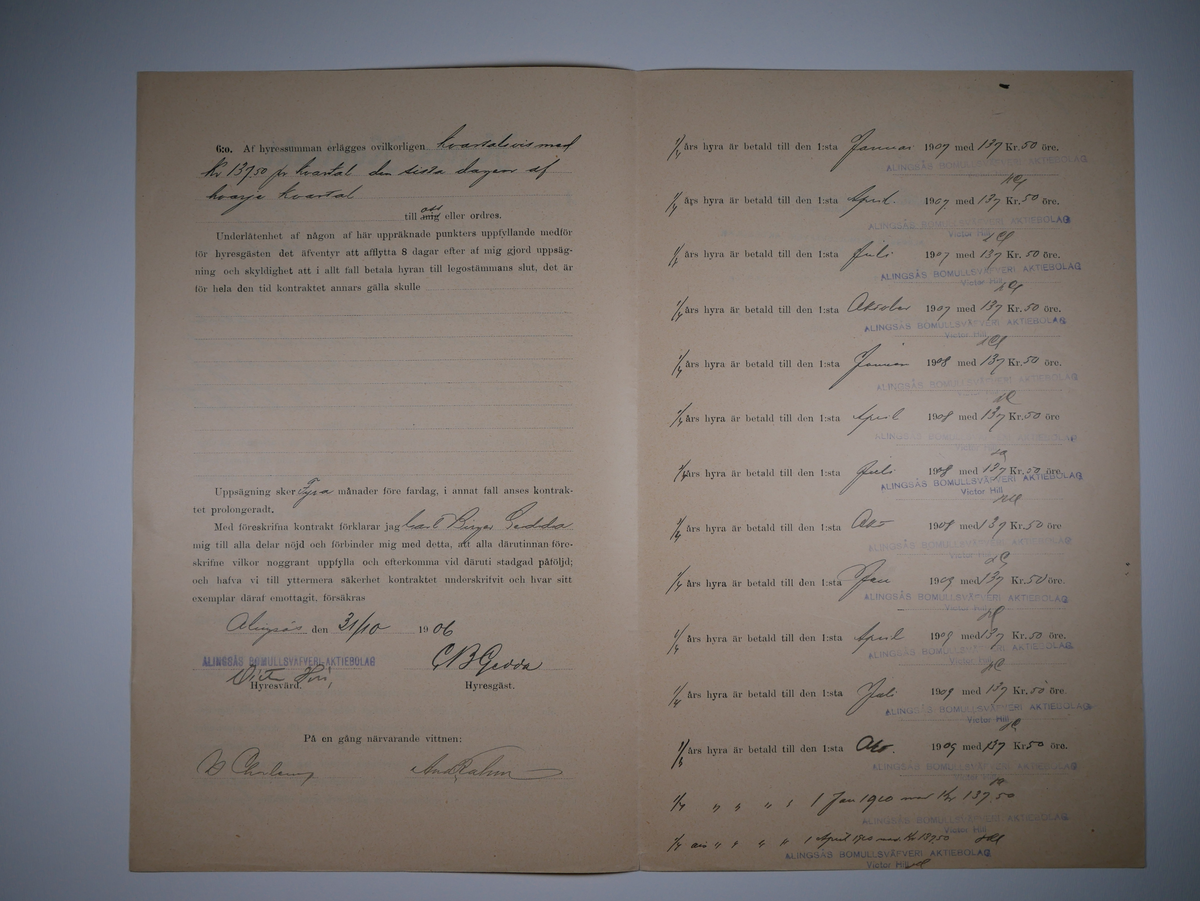 6:o. Af hyressumman erlägges ovilkorligen kvartalsvis med
Kr 137,50 pr kvartal den sista dagen af
hvarje kvartal
till mig eller ordres.
Underlåtenhet af någon af här uppräknade punkters uppfyllande medför
för hyresgästen det äfventyr att afflytta 8 dagar efter af mig gjord uppsäg-
ning och skyldighet att i allt fall betala hyran till legostämmans slut, det är
för hela den tid kontraktet annars gälla skulle
Uppsägning sker Fyra månader före fardag, i annat fall anses kontrak-
tet prolongeradt.
Med föreskrifna kontrakt förklarar jag Carl Birger Gedda
mig till alla delar nöjd och förbinder mig med detta, att alla därutinnan före-
skrifne vilkor noggrant uppfylla och efterkomma vid däruti stadgad påföljd;
och hafva vi till yttermera säkerhet kontraktet underskrifvit och hvar sitt
exemplar däraf emottagit, försäkras
Alingsås den 31/10 1906
ALINGSÅS BOMULLSVÄFVERI AKTIEBOLAG CB Gedda
Victor Hill
Hyresvärd. Hyresgäst.
På en gång närvarande vittnen:
1/4 års hyra är betald till den 1:sta Januari 1907 med 137 Kr. 50 öre.
ALINGSÅS BOMULLSVÄFVERI AKTIEBOLAG
1/4 års hyra är betald till den 1:sta April 1907 med 137 Kr. 50 öre.
ALINGSÅS BOMULLSVÄFVERI AKTIEBOLAG
Victor Hill
1/4 års hyra är betald till den 1:sta Juli 1907 med 137 Kr. 50 öre.
ALINGSÅS BOMULLSVÄFVERI AKTIEBOLAG
Victor Hill
1/4 års hyra är betald till den 1:sta Oktober 1907 med 137 Kr. 50 öre.
ALINGSÅS BOMULLSVÄFVERI AKTIEBOLAG
Victor Hill
1/4 års hyra är betald till den 1:sta Januari 1908 med 137 Kr. 50 öre.
ALINGSÅS BOMULLSVÄFVERI AKTIEBOLAG
1/4 års hyra är betald till den 1:sta April 1908 med 137 Kr. 50 öre
ALINGSÅS BOMULLSVÄFVERI AKTIEBOLAG
1/4 års hyra är betald till den 1:sta Juli 1908 med 137 Kr. 50 öre.
ALINGSÅS BOMULLSVÄFVERI AKTIEBOLAG
Victor Hill
1/4 års hyra är betald till den 1:sta Okto 1908 med 137 Kr. 50 öre
ALINGSÅS BOMULLSVÄFVERI AKTIEBOLAG
Victor Hill
1/4 års hyra är betald till den 1:sta Jan 1909 med 137 Kr. 50 öre.
ALINGSÅS BOMULLSVÄFVERI AKTIEBOLAG
1/4 års hyra är betald till den 1:sta April 1909 med 137 Kr. 50 öre.
ALINGSÅS BOMULLSVÄFVERI AKTIEBOLAG
1/4 års hyra är betald till den 1:sta Juli 1909 med 137 Kr. 50 öre
ALINGSÅS BOMULLSVÄFVERI AKTIEBOLAG
Victor Hill
1/4 års hyra är betald till den 1:sta Okto. 1909 med 137 Kr 50 öre.
ALINGSÅS BOMULLSVÄFVERI AKTIEBOLAG
Victor Hill
1/4 " " " 1 1 Jan 1910 med Kr 137,50
ALINGSÅS BOMULLSVÄFVERI AKTIEBOLAG
Victor Hill
1/4 års " " " " 1 April 1910 med Kr 137,50
ALINGSÅS BOMULLSVÄFVERI AKTIEBOLAG
Victor Hill